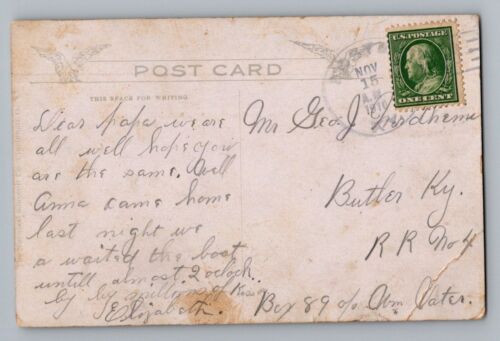 POST CARD
THIS SPACE FOR WRITING
Dear papa we are
all well hope you
are the same. Well
Anna came home
last night we
a waited the boat
untill almost 2 oclock.
by by millions of Kisses
Elizabeth.
U.S. POSTAGE
ONE CENT
NOV
15
A.M.
1910
KY
Mr Geo. J
Butler Ky.
R R No 4
Box 89 c/o Wm Vater.